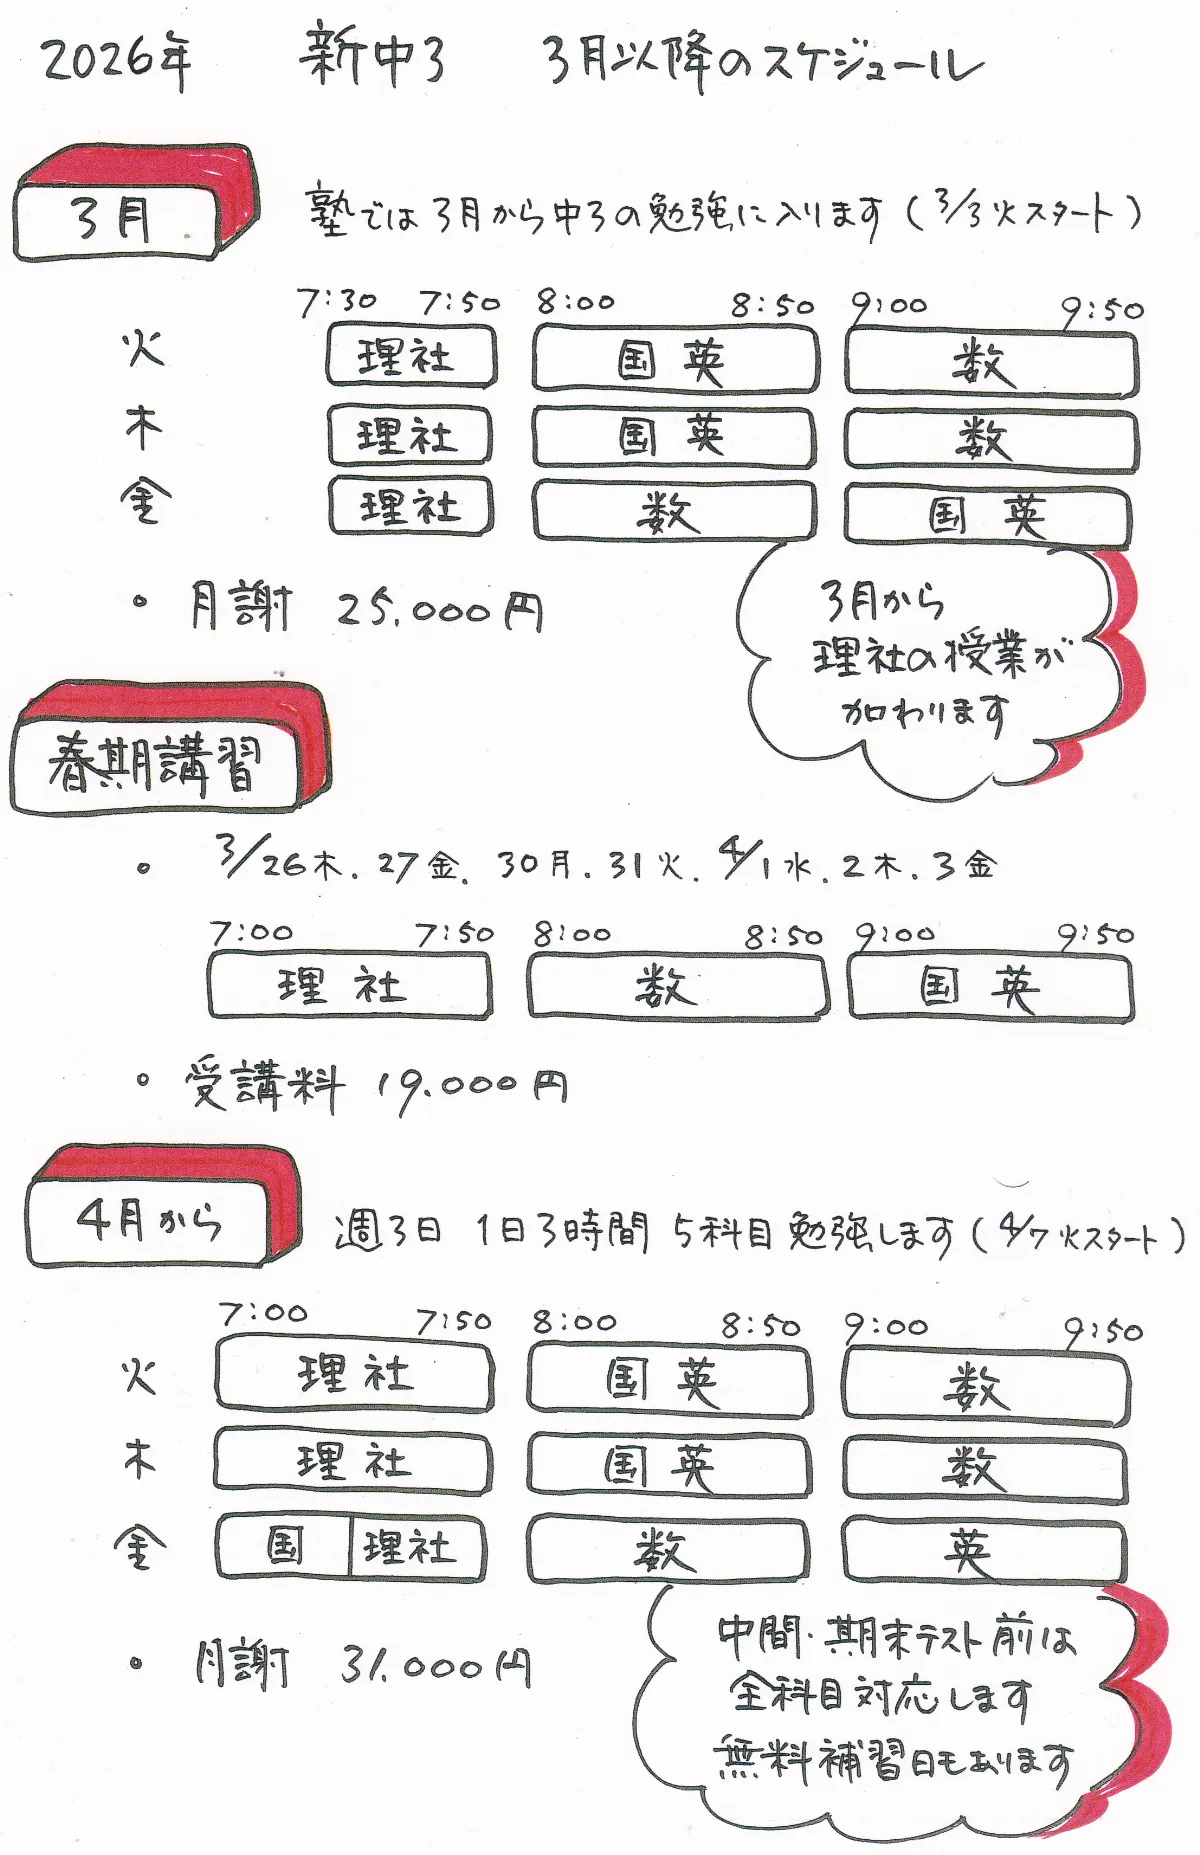 2026年 新中3 3月以降のスケジュール
3月
塾では3月から中3の勉強に入ります(3/3火スタート)
7:30 7:50 8:00 8:50 9:00 9:50
火 理社 国英 数
木 理社 国英 数
金 理社 数 国英
・月謝 25.000円
3月から
理社の授業が
加わります
春期講習
・3/26木.27金.30月.31火.4/1水.2木.3金
7:00 7:50 8:00 8:50 9:00 9:50
理社 数 国英
・受講料 19.000円
4月から
週3日 1日3時間 5科目勉強します(4/7火スタート)
7:00 7:50 8:00 8:50 9:00 9:50
火 理社 国英 数
木 理社 国英 数
金 国 理社 数 英
・月謝 31.000円
中間・期末テスト前は
全科目対応します
無料補習日もあります